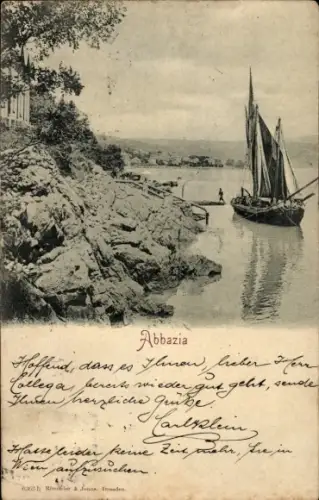 Abbazia
Hoffend, dass es Ihnen, lieber Herr
Collega bereits wieder gut geht, sende
Ihnen herzliche Grüße
Karl Klein
Hatte leider keine Zeit mehr, Sie in
Wien aufzusuchen
Römmler & Jonas, Dresden.